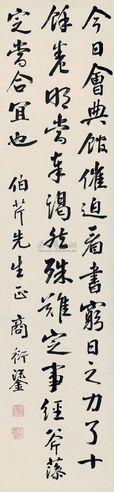 今日會典館催迫看書窮日之力了十
餘卷明當奉謁然殊難定事經斧藻
定當合宜也
伯芹先生正 商衍鎏